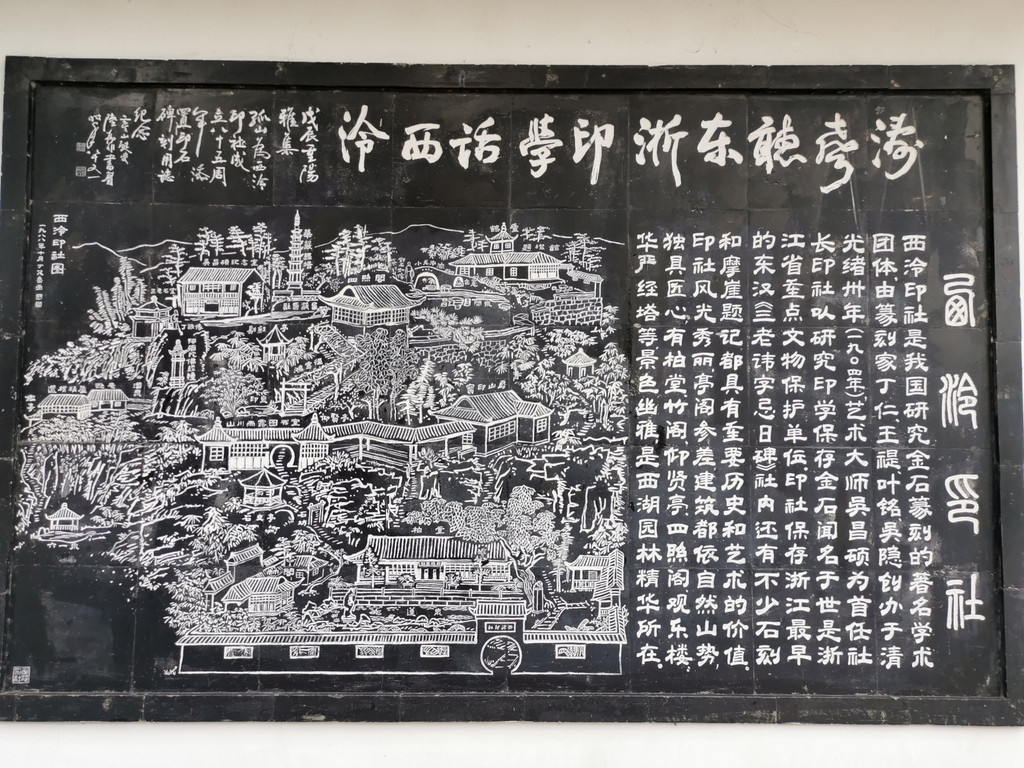 西泠印社
西泠印社是我国研究金石篆刻的著名学术
团体由篆刻家丁仁.王禔.叶铭.吴隐创办于清
光绪卅年(一九〇四年)艺术大师吴昌硕为首任社
长印社以研究印学保存金石闻名于世是浙
江省重点文物保护单位.印社保存浙江最早
的东汉《三老讳字忌日碑》社内还有不少石刻
和摩崖题记都具有重要历史和艺术的价值.
印社风光秀丽亭阁参差建筑都依自然山势,
独具匠心有柏堂.竹阁.仰贤亭.四照阁.观乐楼.
华严经塔等景色幽雅是西湖园林精华所在.
涛聲聽东浙印學話西泠
戊辰重陽
雅集
孤山為西泠
印社成
立八十五周
年添
置印石
碑刻用誌
纪念
西泠印社图
山川雨露图书室
柏堂